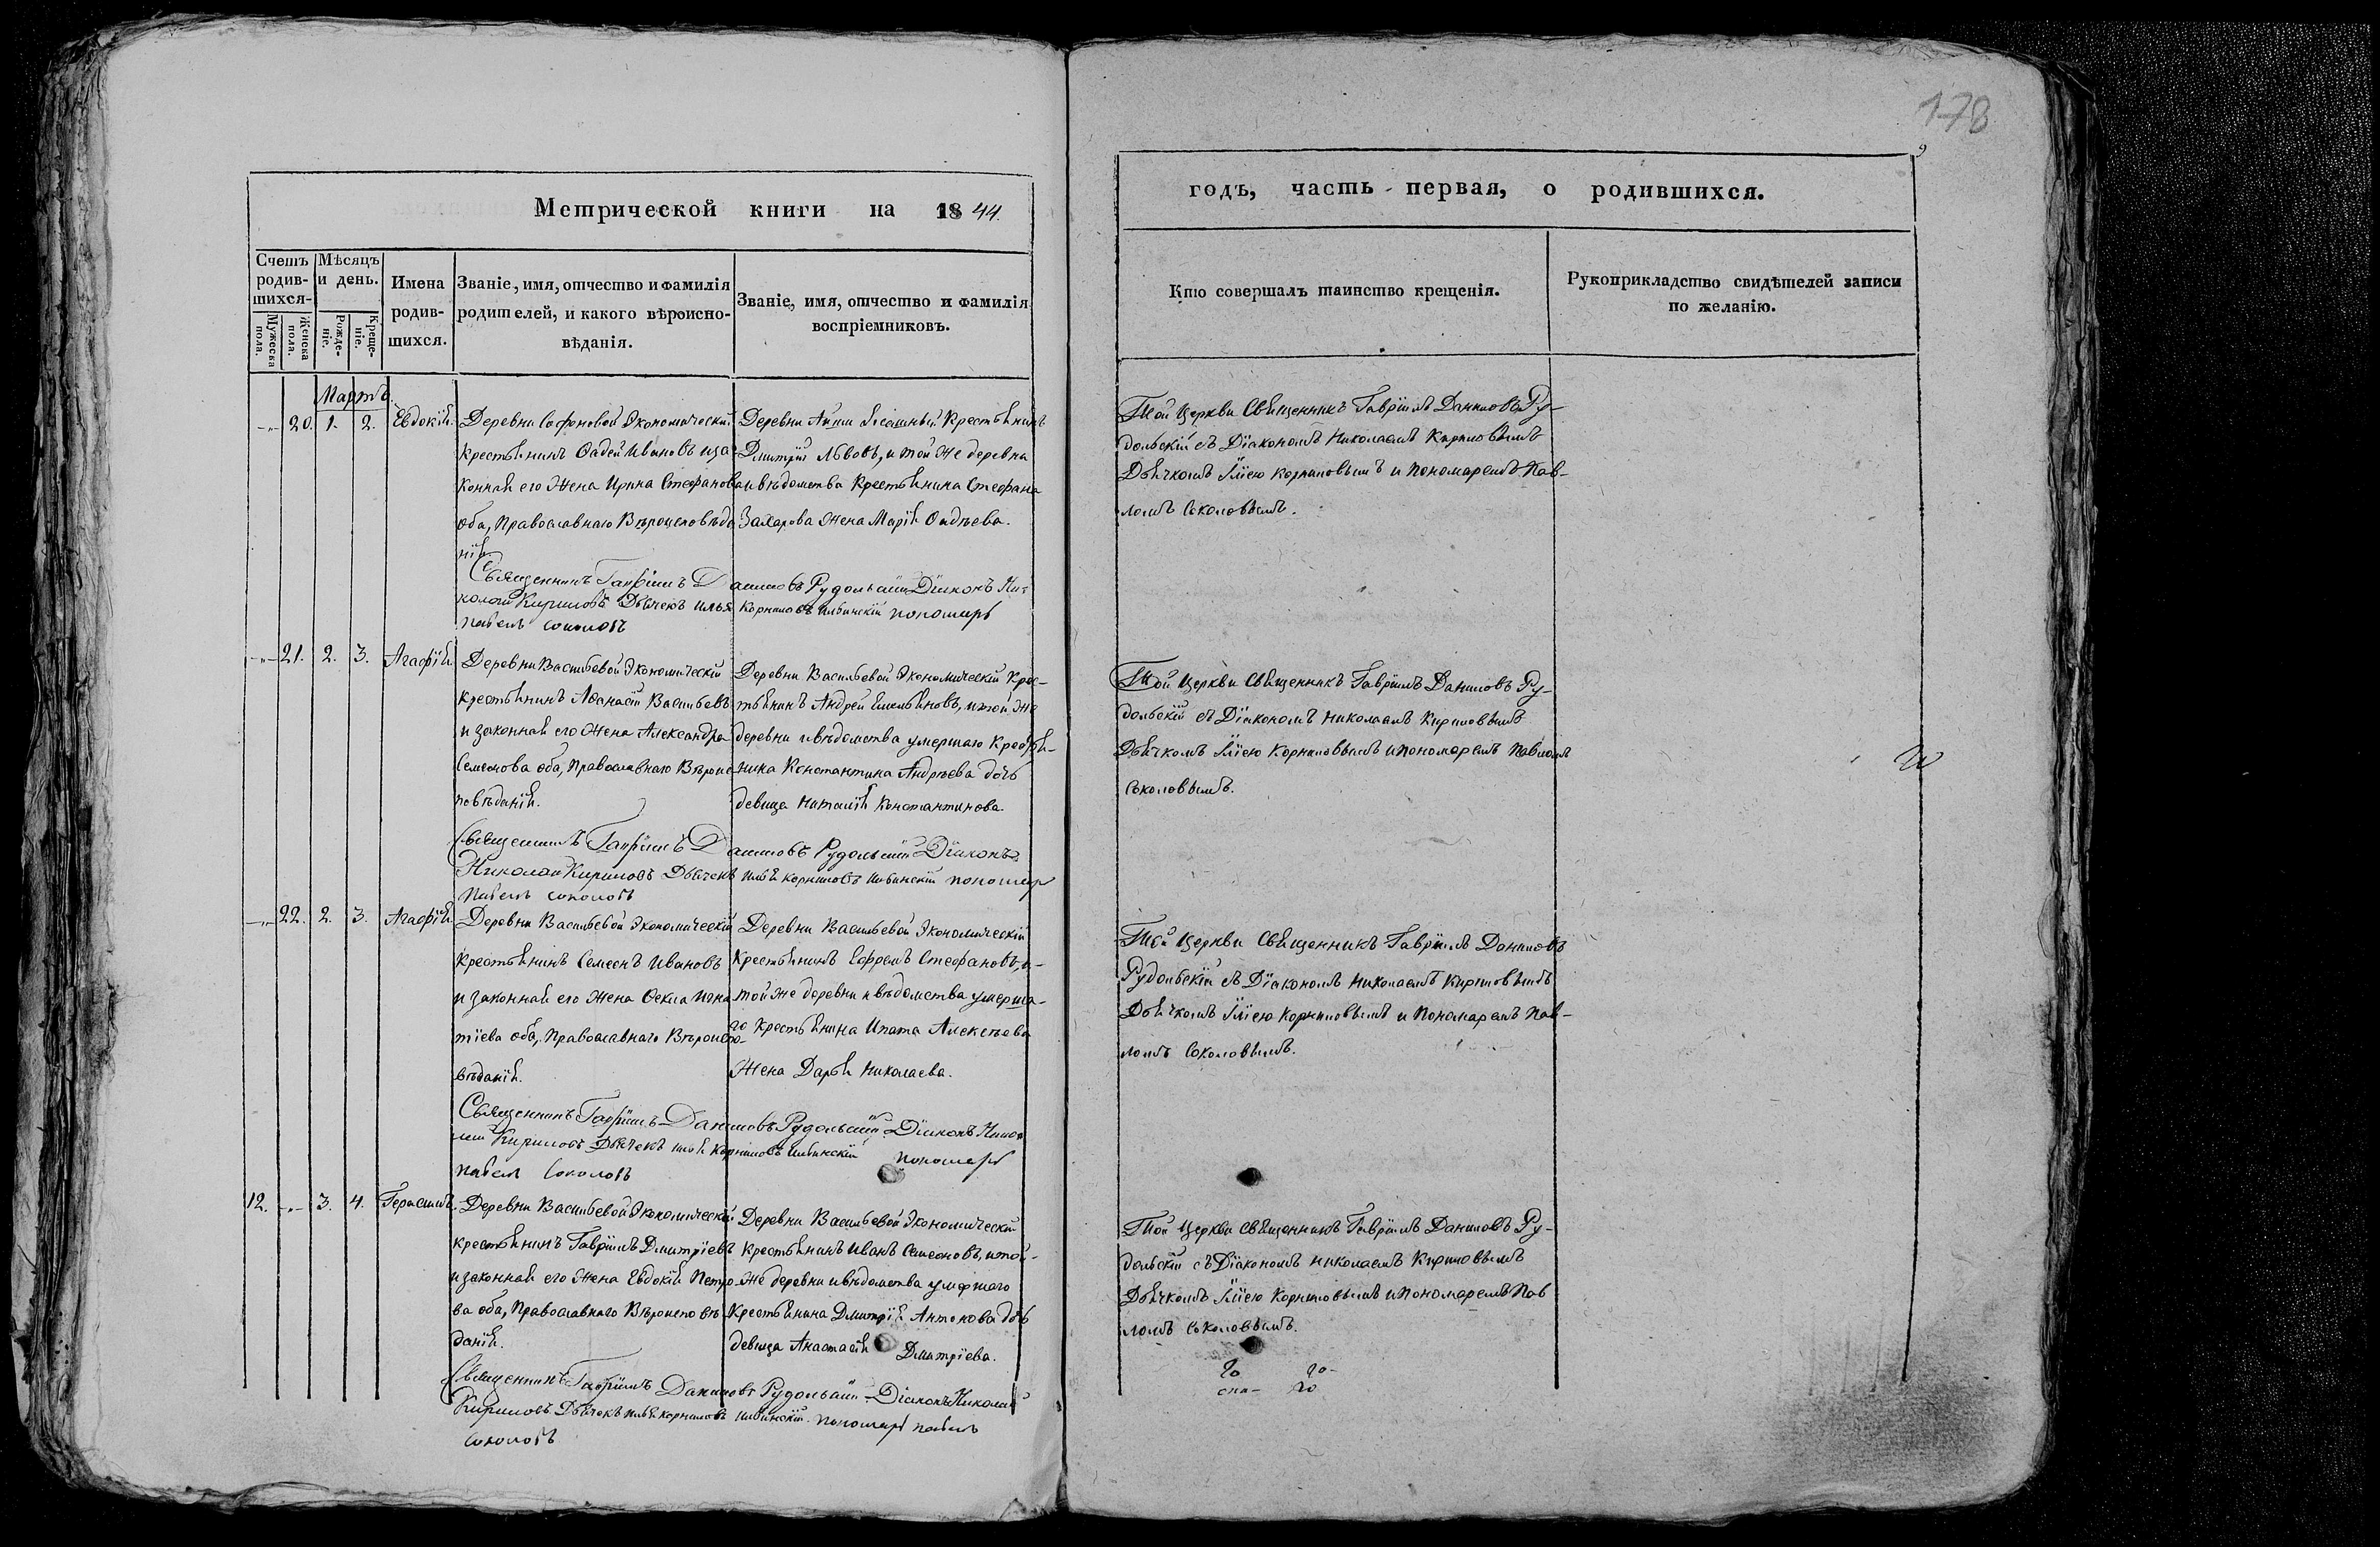 178
9
Метрической книги на 1844.
годъ, часть первая, о родившихся.
Счетъ родив-шихся.
Мужеска пола.
Женска пола.
Мѣсяцъ и день.
Рожде-ніе.
Креще-ніе.
Имена
родив-
шихся.
Званіе, имя, отчество и фамилія
родителей, и какого вѣроиспо-
вѣданія.
Званіе, имя, отчество и фамилія
воспріемниковъ.
Кто совершалъ таинство крещенія.
Рукоприкладство свидѣтелей записи
по желанію.
Мартъ.
20. 1. 2. Евдокія.
Деревни Софоновой Экономическій
крестьянинъ Фадей Ивановъ и за-
конная его жена Ирина Стефанова
оба, Православнаго Вѣроисповѣда
нія.
Деревни Крестьянинъ
Дмитрій Львовъ, и той же деревни
и вѣдомства Крестьянина Стефана
Захарова жена Марія Фадѣева.
Той Церкви Священникъ Гавріилъ Даниловъ Ру-
дольскій съ Діакономъ Николаемъ Кириловымъ
Дьячкомъ Иліею Корниловымъ и Пономаремъ Пав-
ломъ Соколовымъ.
Священникъ Гавріилъ Даниловъ Рудольскій Діаконъ Ни-
колай Кириловъ Дьячекъ Илья Корниловъ Ильинскій пономарь
Павелъ Соколовъ
21. 2. 3. Агафія.
Деревни Васильевой Экономическій
крестьянинъ Афанасій Васильевъ
и законная его жена Александра
Семенова оба, Православнаго Вѣроис
повѣданія.
Деревни Васильевой Экономическій Крес-
тьянинъ Андрей Емельяновъ, и той же
деревни и вѣдомства умершаго Крестья-
нина Константина Андрѣева дочь
девица Наталія Константинова.
Той Церкви Священникъ Гавріилъ Даниловъ Ру-
дольскій съ Діакономъ Николаемъ Кириловымъ
Дьячкомъ Иліею Корниловымъ и Пономаремъ Павломъ
Соколовымъ.
Священникъ Гавріилъ Даниловъ Рудольскій Діаконъ
Николай Кириловъ Дьячекъ Илья Корниловъ Ильинскій пономарь
Павелъ Соколовъ
22. 2. 3. Агафія.
Деревни Васильевой Экономическій
крестьянинъ Семенъ Ивановъ
и законная его жена Фекла Игна
тіева оба, Православнаго Вѣроиспо-
вѣданія.
Деревни Васильевой Экономическій
Крестьянинъ Ефремъ Стефановъ, и-
той же деревни и вѣдомства умерша-
го Крестьянина Ипата Алексѣева
жена Дарья Николаева.
Той Церкви Священникъ Гавріилъ Даниловъ
Рудольскій съ Діакономъ Николаемъ Кириловымъ
Дьячкомъ Иліею Корниловымъ и Пономаремъ Пав-
ломъ Соколовымъ.
Священникъ Гавріилъ Даниловъ Рудольскій Діаконъ Нико
лай Кириловъ Дьячекъ Илья Корниловъ Ильинскій пономарь
Павелъ Соколовъ
12. 3. 4. Герасимъ.
Деревни Васильевой Экономическій
крестьянинъ Гавріилъ Дмитріевъ
и законная его жена Евдокія Петро
ва оба, Православнаго Вѣроисповѣ
данія.
Деревни Васильевой Экономическій
крестьянинъ Иванъ Семеновъ, и той-
же деревни и вѣдомства умершаго
Крестьянина Дмитрія Антонова дочь
девица Анастасія Дмитріева.
Той Церкви Священникъ Гавріилъ Даниловъ Ру-
дольскій съ Діакономъ Николаемъ Кириловымъ
Дьячкомъ Иліею Корниловымъ и Пономаремъ Пав
ломъ Соколовымъ.
Священникъ Гавріилъ Даниловъ Рудольскій Діаконъ Николай
Кириловъ Дьячекъ Илья Корниловъ Ильинскій. Пономарь Павелъ
Соколовъ